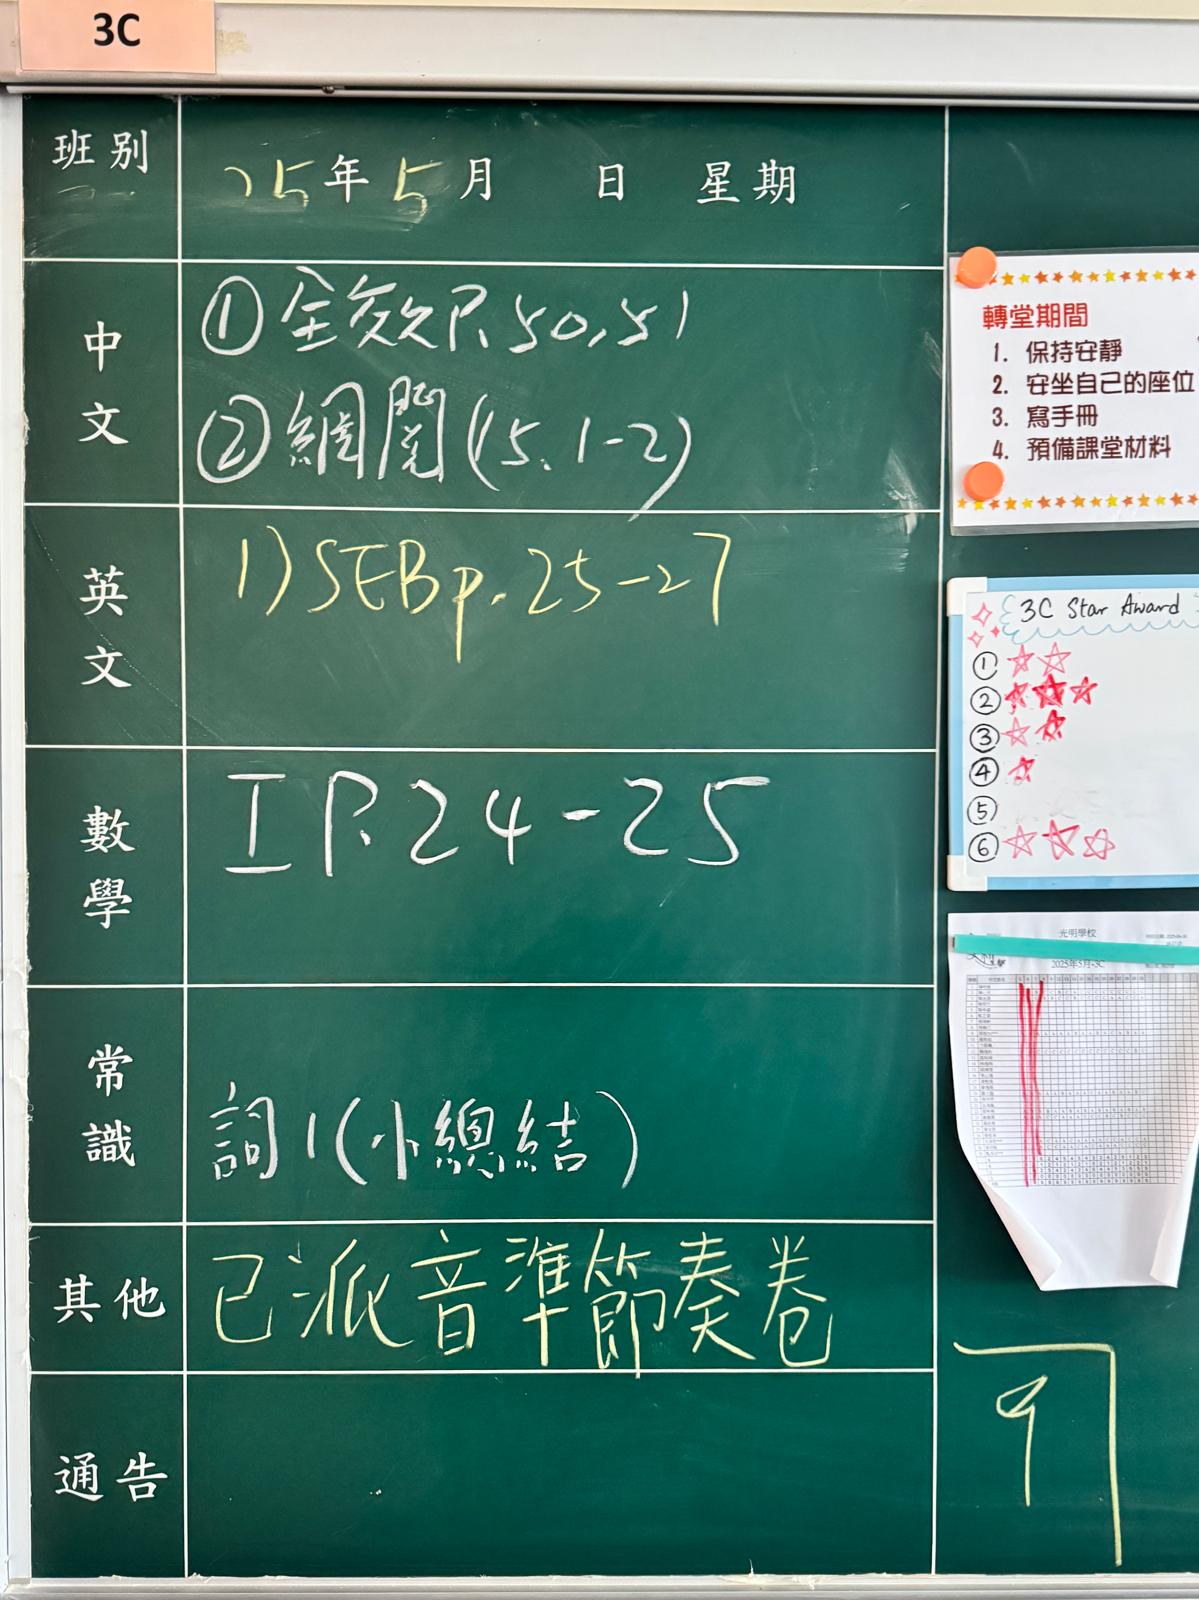 3C
班別
25年5月 日 星期
中文
①全效P.50,51
②網閱(15.1-2)
英文
1)SEB p.25-27
數學
工P.24-25
常識
詞1(小總結)
其他
已派音準節奏卷
通告
轉堂期間
1. 保持安靜
2. 安坐自己的座位
3. 寫手冊
4. 預備課堂材料
3C Star Award
①
②
③
④
⑤
⑥
光明學校
2025年5月-3C
9